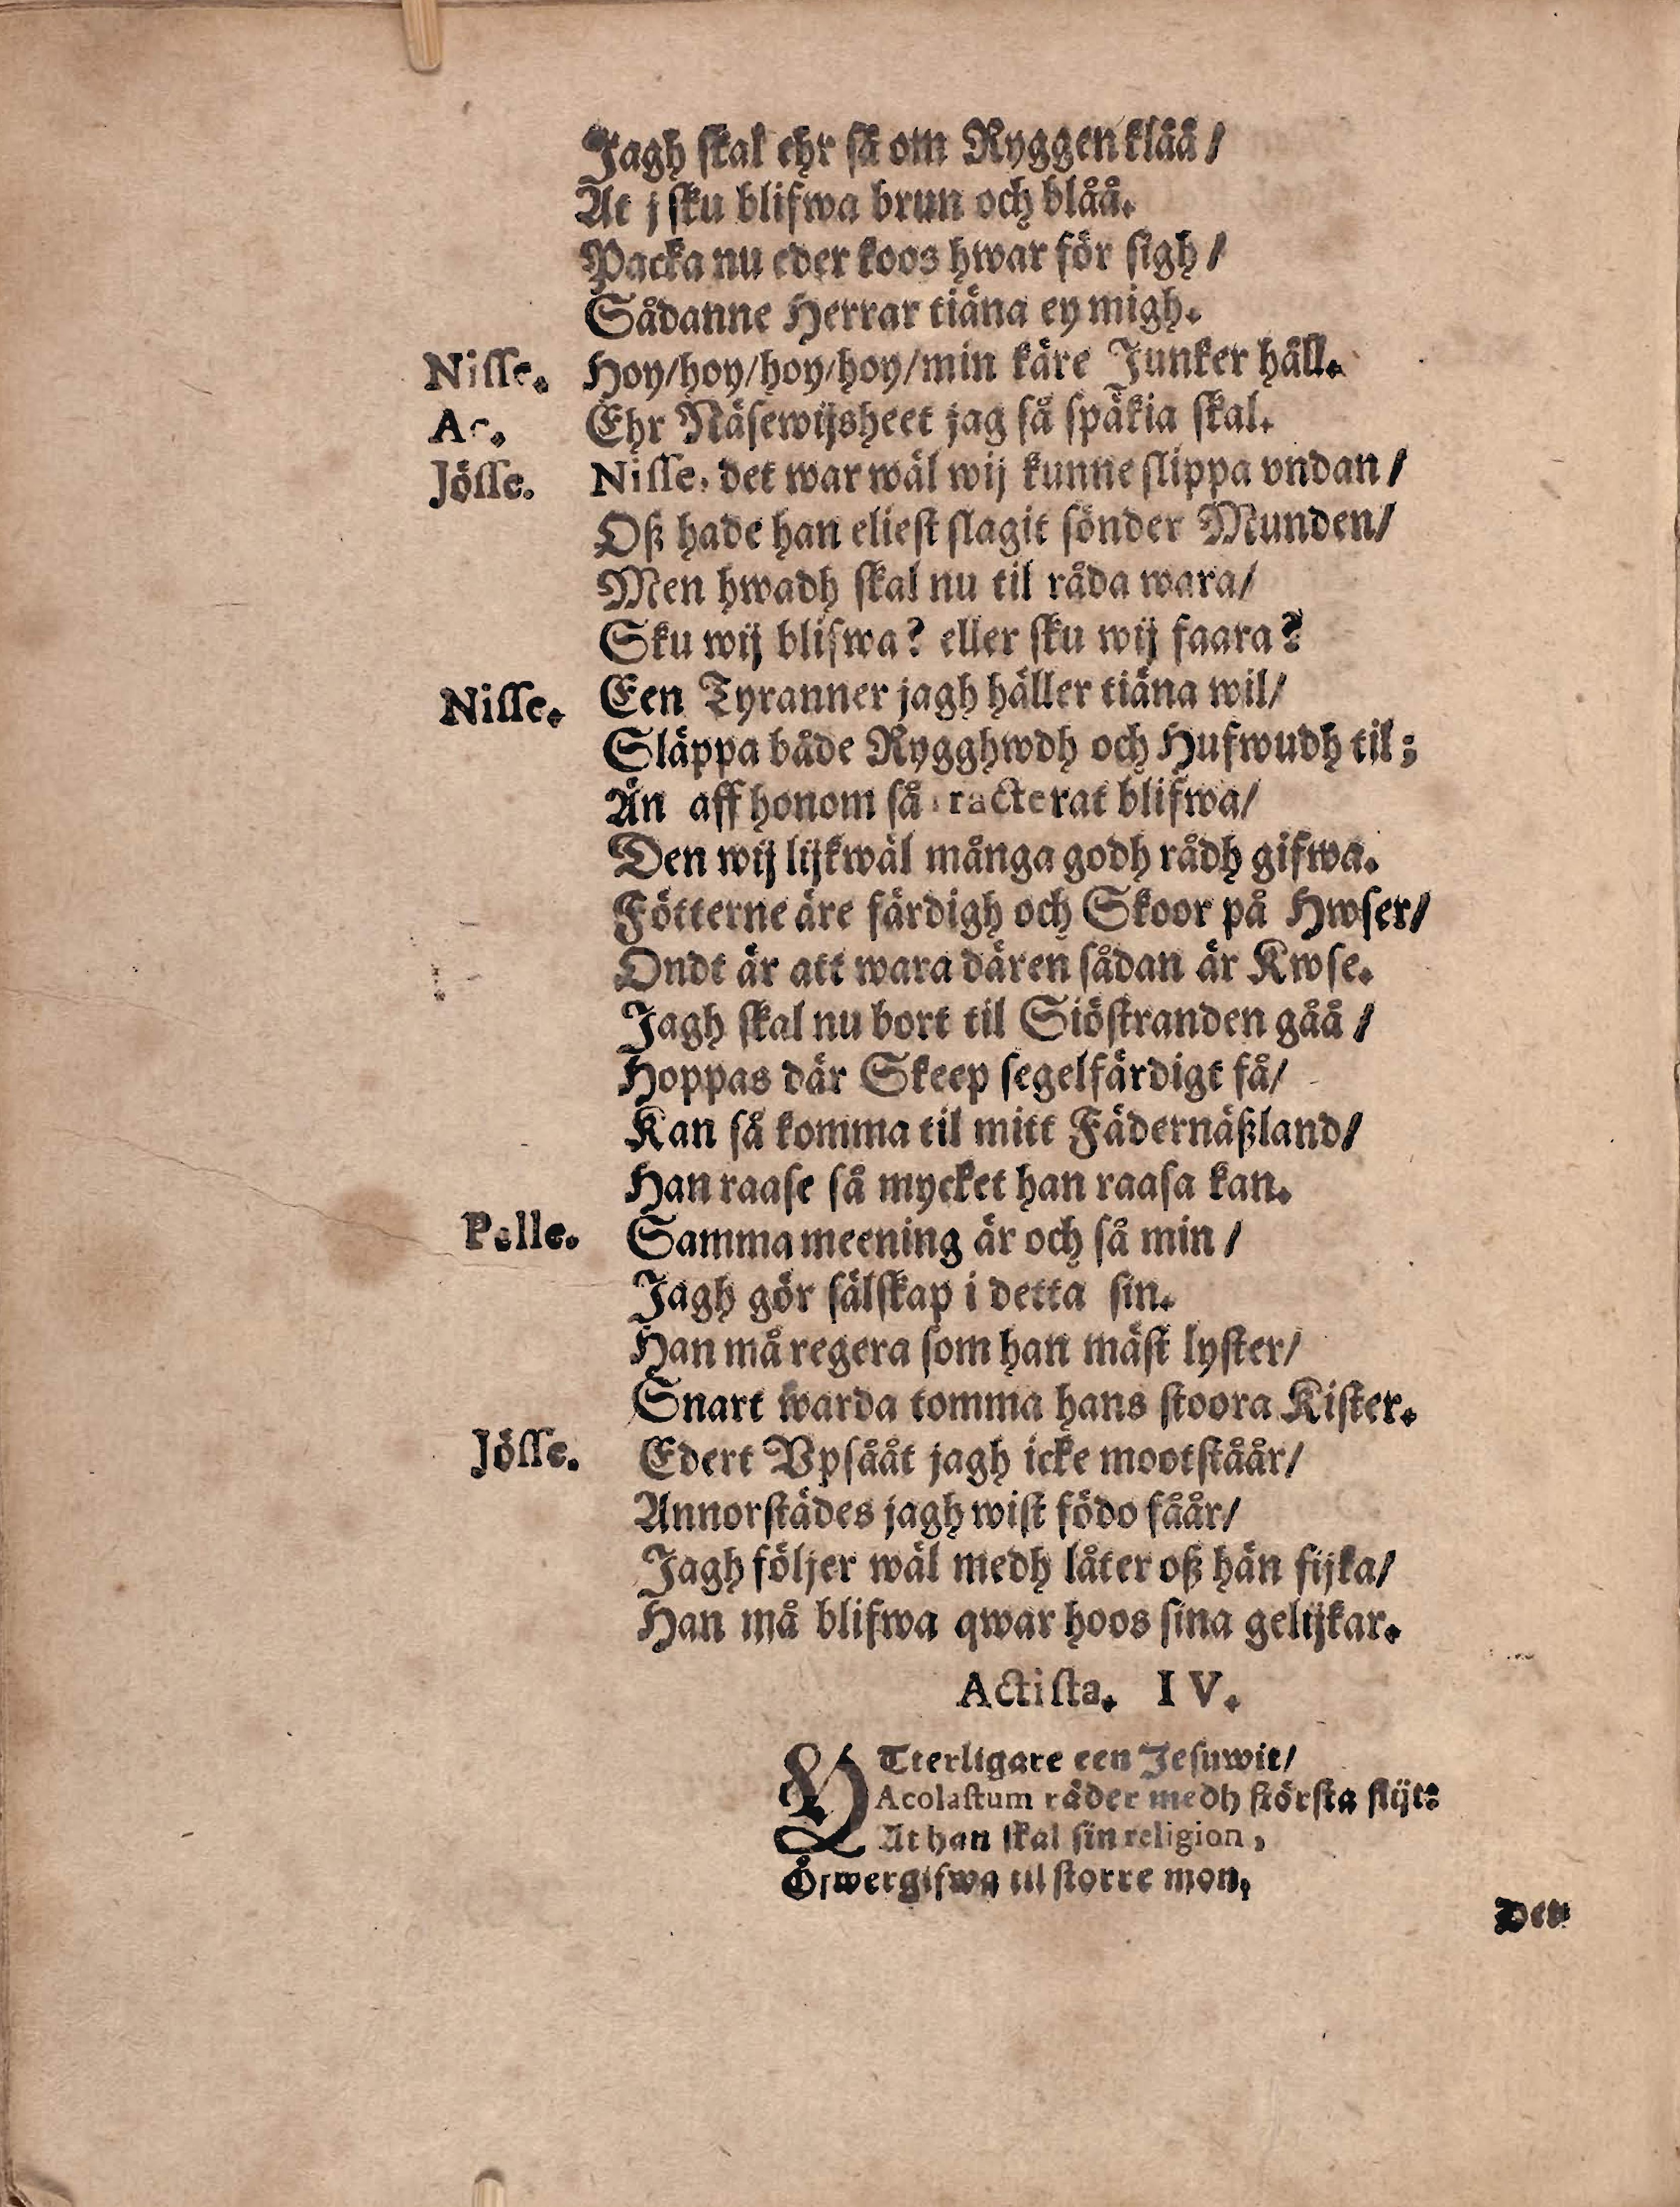 Jagh skal ehr så om Ryggen klåå/
At j sku blifwa brun och blåå.
Packa nu eder koos hwar för sigh/
Sådanne Herrar tiäna ey migh.
Nisse. Hoy/hoy/hoy/hoy/min käre Junker håll.
Ac. Ehr Näsewijsheet jag så späkia skal.
Jösse. Nisse, det war wäl wij kunne slippa vndan/
Oß hade han eliest slagit sönder Munden/
Men hwadh skal nu til råda wara/
Sku wij blifwa? eller sku wij faara?
Nisse. Een Tyranner jagh häller tiäna wil/
Släppa både Rygghwdh och Hufwudh til;
Än aff honom så racterat blifwa/
Den wij lijkwäl många godh rådh gifwa.
Fötterne äre färdigh och Skoor på Hwser/
Ondt är att wara dären sådan är Kwse.
Jagh skal nu bort til Siöstranden gåå/
Hoppas där Skeep segelfärdigt få/
Kan så komma til mitt Fädernäßland/
Han raase så mycket han raasa kan.
Palle. Samma meening är och så min/
Jagh gör sälskap i detta sin.
Han må regera som han mäst lyster/
Snart warda tomma hans stoora Kister.
Jösse. Edert Vpsååt jagh icke mootståår/
Annorstädes jagh wist födo fåår/
Jagh följer wäl medh låter oß hän fijka/
Han må blifwa qwar hoos sina gelijkar.
Actista. IV.
YTterligare een Jesuwit/
Acolastum råder medh största flijt:
At han skal sin religion,
Öfwergifwa til storre mon,
Den